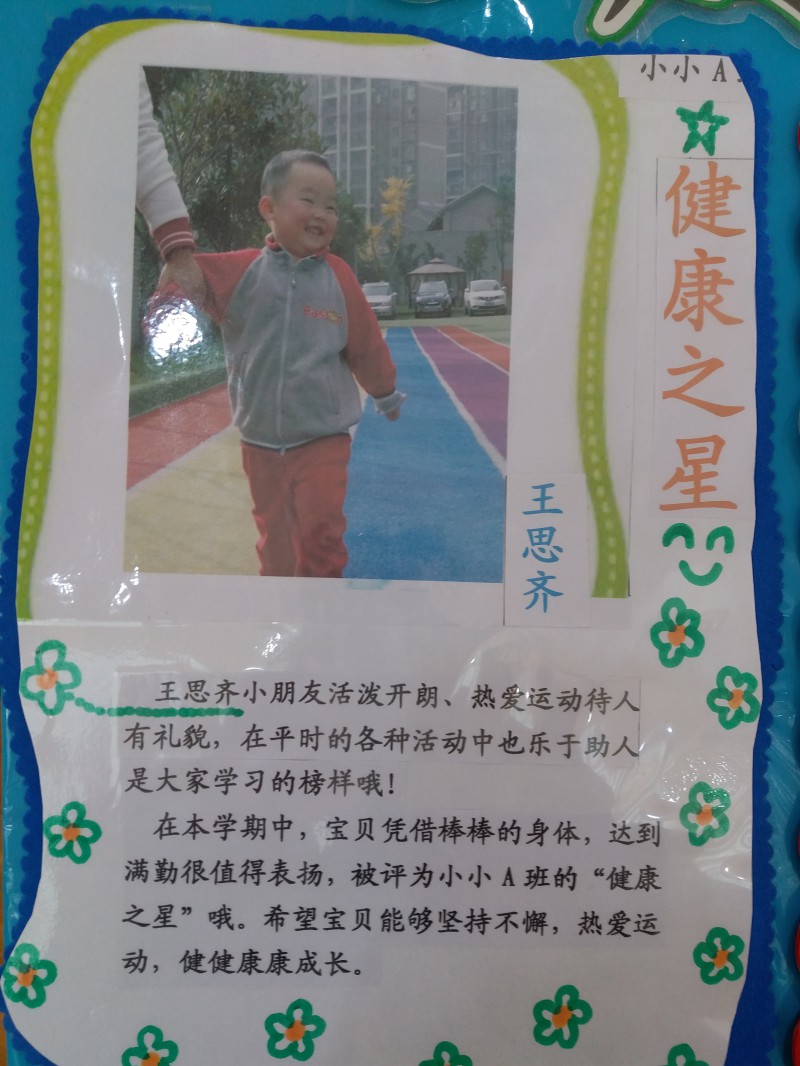 小小 A
健康之星
王思齐
王思齐小朋友活泼开朗、热爱运动待人
有礼貌，在平时的各种活动中也乐于助人
是大家学习的榜样哦！
在本学期中，宝贝凭借棒棒的身体，达到
满勤很值得表扬，被评为小小 A 班的“健康
之星”哦。希望宝贝能够坚持不懈，热爱运
动，健健康康成长。